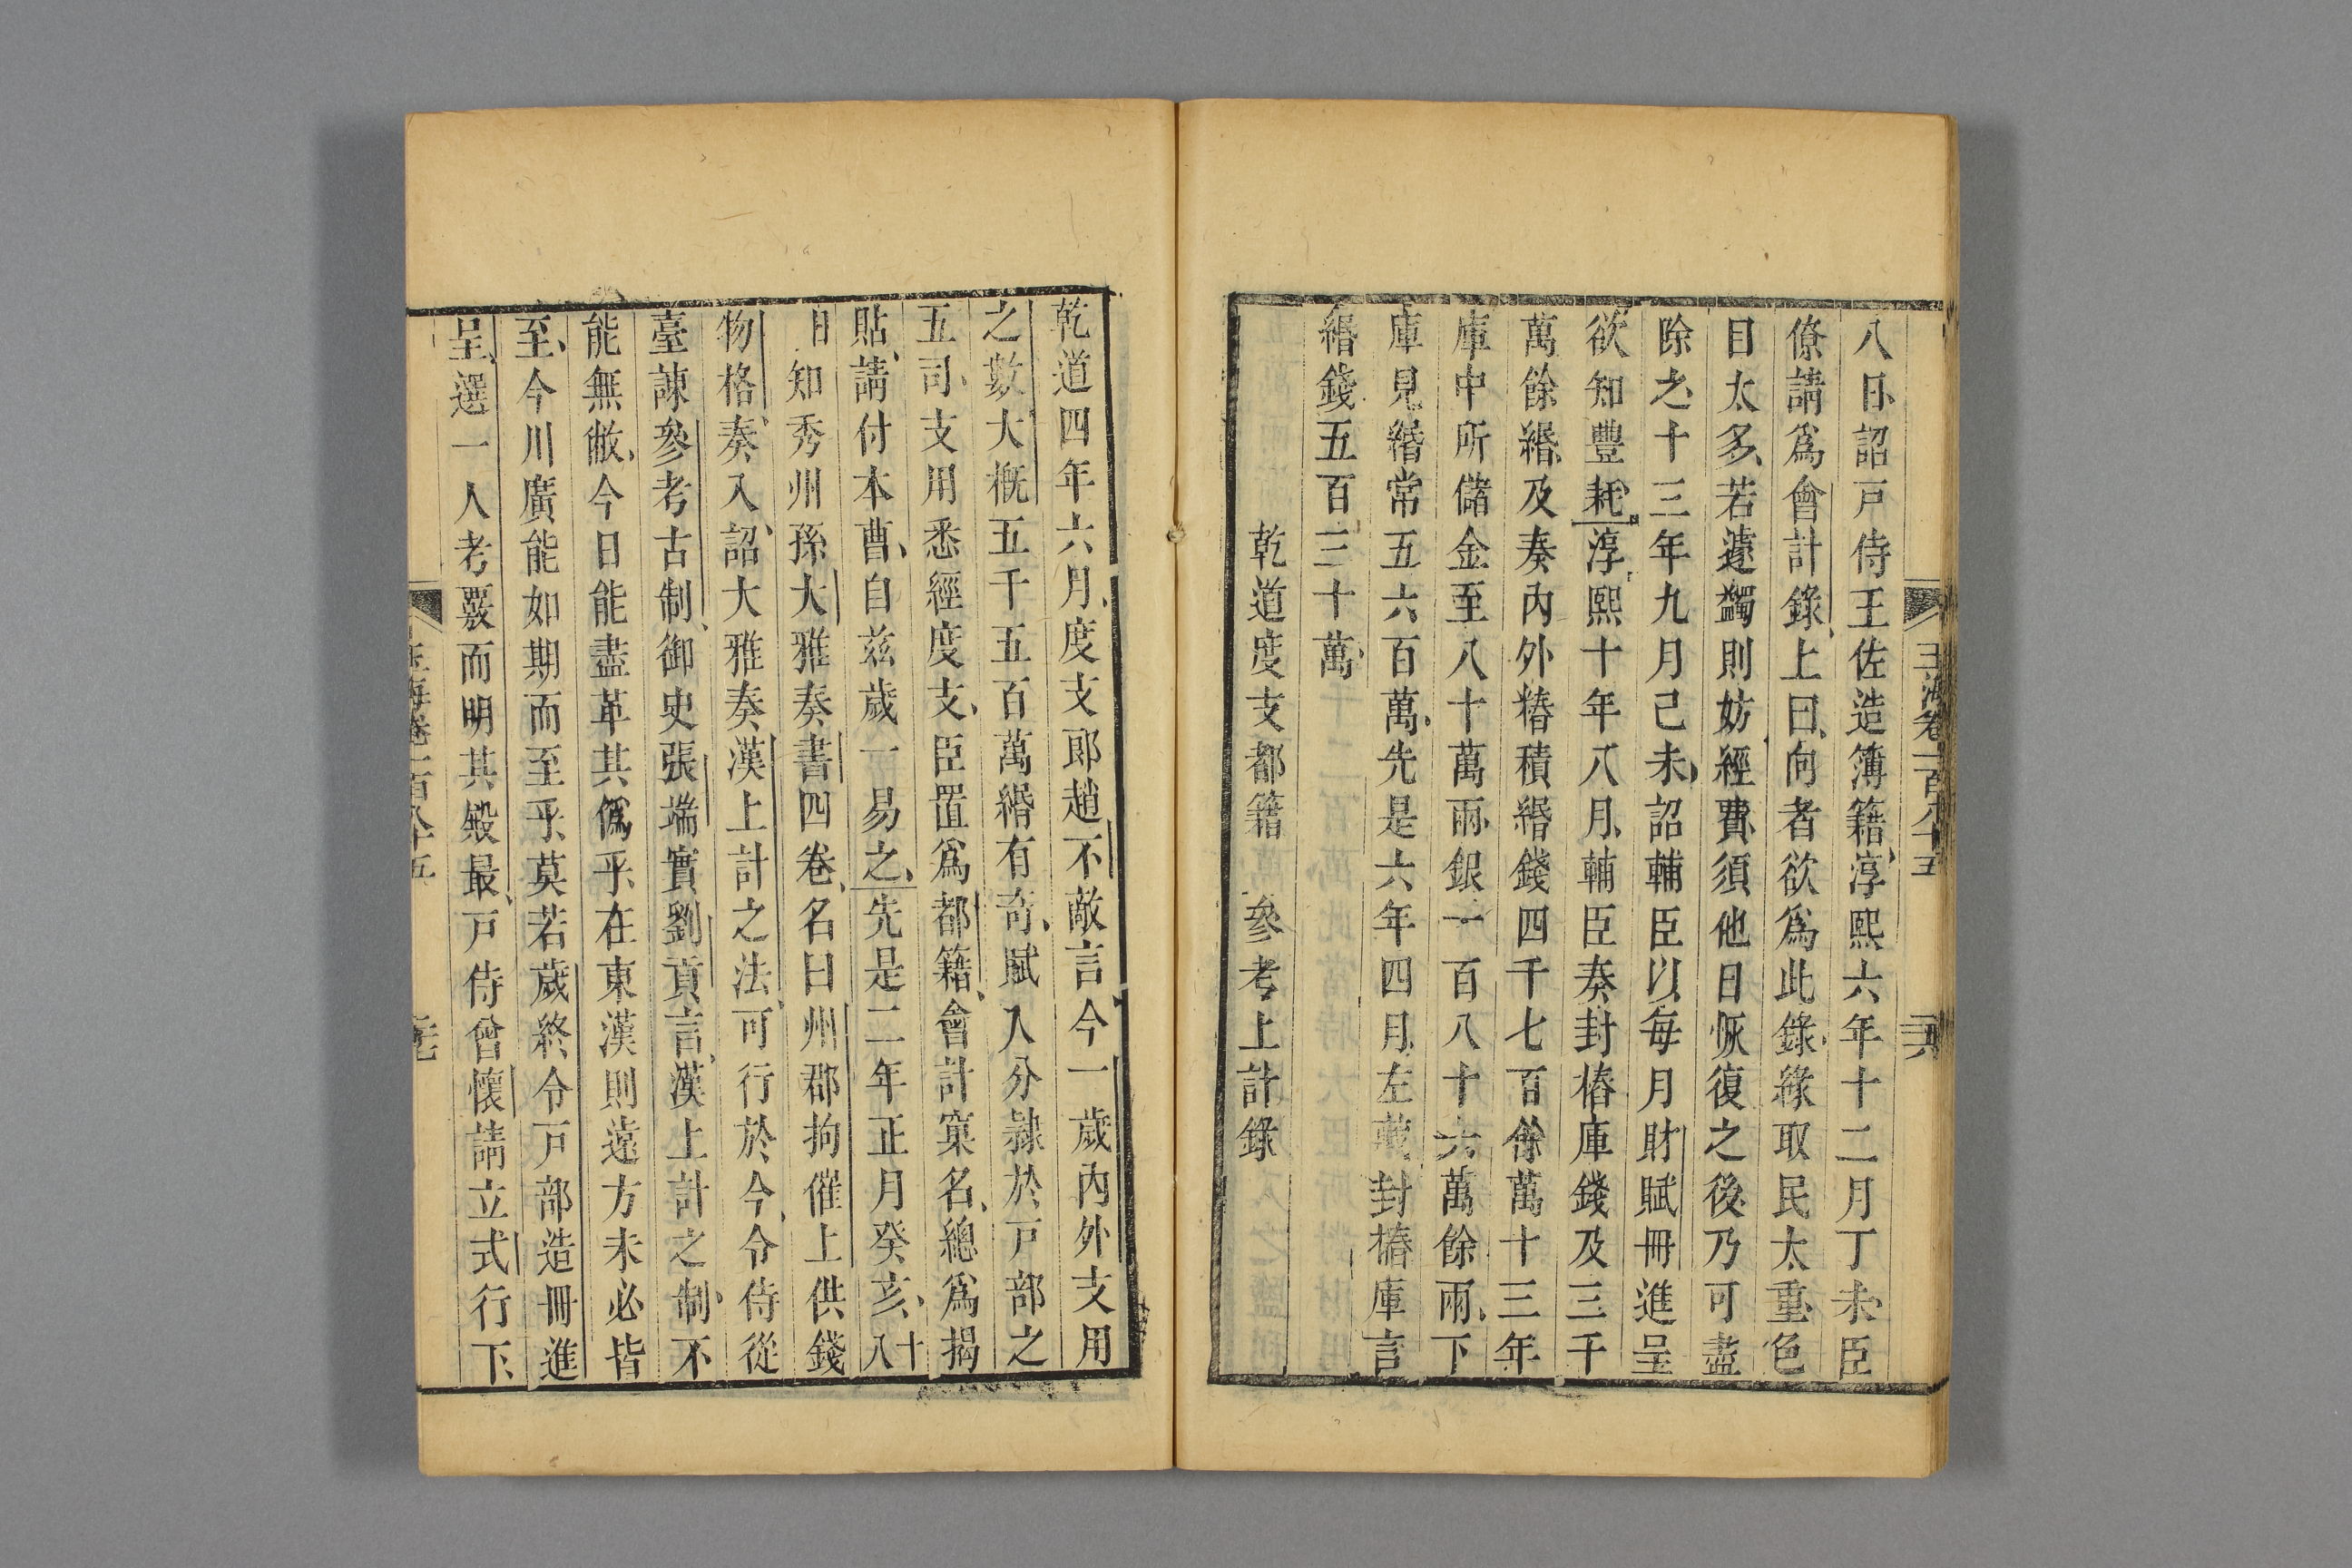 玉海卷一百八十五 二十六
八日詔戸侍王佐造簿籍淳熙六年十二月丁未臣
僚請爲會計錄上曰向者欲爲此錄緣取民太重色
目太多若遽蠲則妨經費須他日恢復之後乃可盡
除之十三年九月己未詔輔臣以每月財賦冊進呈
欲知豐耗淳熙十年八月輔臣奏封樁庫錢及三千
萬餘緡及奏內外樁積緡錢四千七百餘萬十三年
庫中所儲金至八十萬兩銀一百八十六萬餘兩下
庫見緡常五六百萬先是六年四月左藏封樁庫言
緡錢五百三十萬
乾道度支都籍 參考上計錄
乾道四年六月度支郎趙不敵言今一歲內外支用
之數大概五千五百萬緡有奇賦入分隸於戸部之
五司支用悉經度支臣置爲都籍會計窠名總爲揭
貼請付本曹自茲歲一易之先是二年正月癸亥十八
日知秀州孫大雅奏書四卷名曰州郡拘催上供錢
物格奏入詔大雅奏漢上計之法可行於今令侍從
臺諫參考古制御史張端實劉貢言漢上計之制不
能無敝今日能盡革其僞乎在東漢則遠方未必皆
至今川廣能如期而至乎莫若歲終令戸部造冊進
呈選一人考覈而明其殿最戸侍曾懷請立式行下
玉海卷一百八十五 二十七